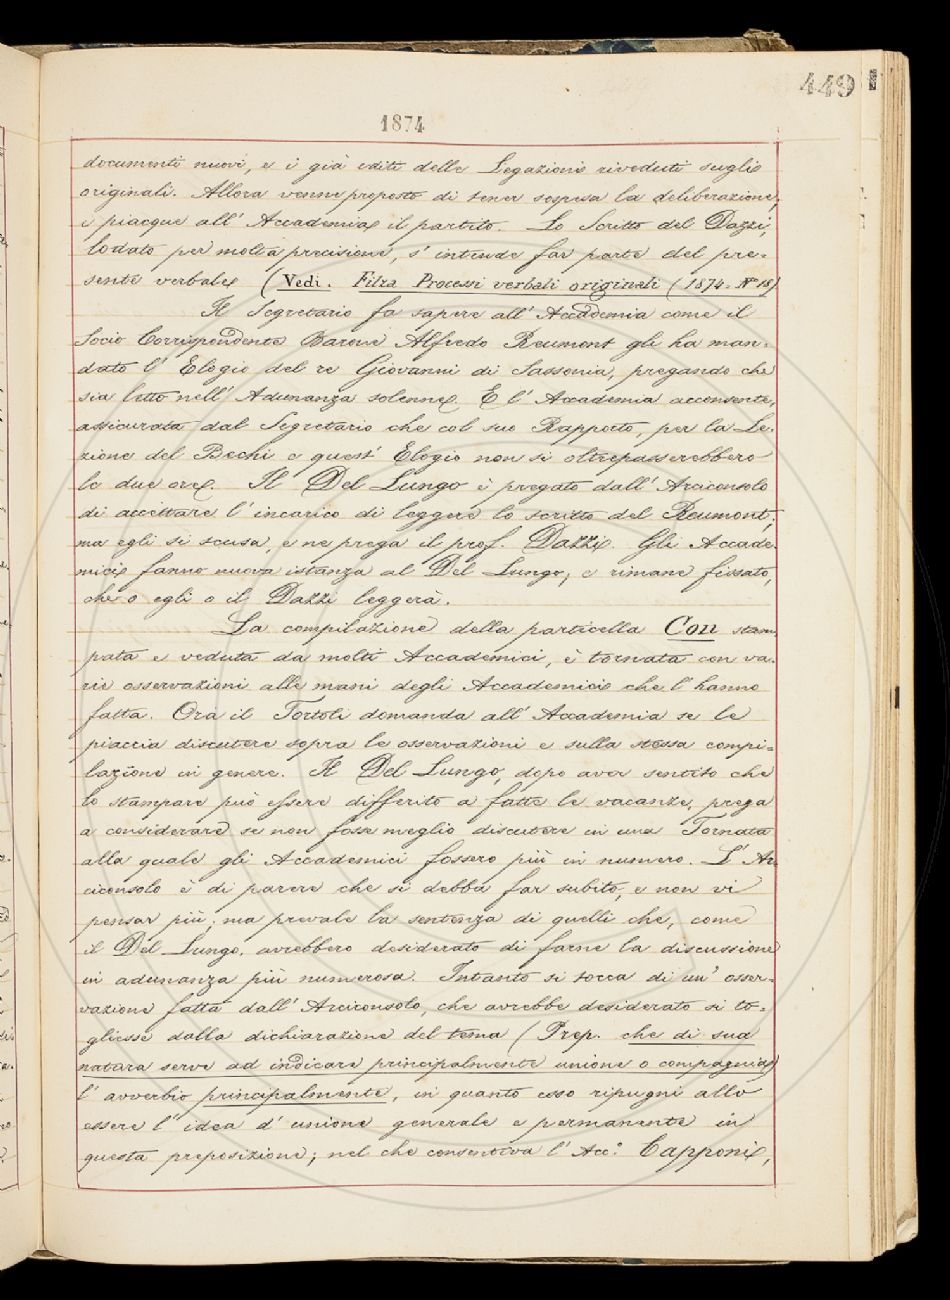 449
1874
documenti nuovi, e i già editi delle Legazioni riveduti sugli
originali. Allora venne proposto di tener sospesa la deliberazione,
e piacque all' Accademia il partito. Lo Scritto del Dazzi,
lodato per molta precisione, s' intende far parte del pre-
sente verbale (Vedi. Filza Processi verbali originali (1874. N° 18)
Il Segretario fa sapere all' Accademia come il
Socio Corrispondente Barone Alfredo Reumont gli ha man-
dato l' Elogio del re Giovanni di Sassonia, pregando che
sia letto nell' Adunanza solenne. E l' Accademia acconsente,
assicurata dal Segretario che col suo Rapporto, per la Le-
zione del Bechi e quest' Elogio non si oltrepasserebbero
le due ore. Il Del Lungo è pregato dall' Arciconsolo
di accettare l' incarico di leggere lo scritto del Reumont;
ma egli si scusa, e ne prega il prof. Dazzi. Gli Accade-
mici fanno nuova istanza al Del Lungo; e rimane fissato,
che o egli o il Dazzi leggerà.
La compilazione della particella Con stam-
pata e veduta da molti Accademici, è tornata con va-
rie osservazioni alle mani degli Accademici che l' hanno
fatta. Ora il Tortoli domanda all' Accademia se le
piaccia discutere sopra le osservazioni e sulla stessa compi-
lazione in genere. Il Del Lungo, dopo aver sentito che
lo stampare può essere differito a fatte le vacanze, prega
a considerare se non fosse meglio discutere in una Tornata
alla quale gli Accademici fossero più in numero. L' Ar-
ciconsolo è di parere che si debba far subito, e non vi
pensar più; ma prevale la sentenza di quelli che, come
il Del Lungo, avrebbero desiderato di farne la discussione
in adunanza più numerosa. Intanto si tocca di un' osser-
vazione fatta dall' Arciconsolo, che avrebbe desiderato si to-
gliesse dalla dichiarazione del tema (Prep. che di sua
natura serve ad indicare principalmente unione o compagnia)
l' avverbio principalmente, in quanto esso ripugni allo
essere l' idea d' unione generale e permanente in
questa preposizione; nel che consentiva l' Acc.° Capponi,